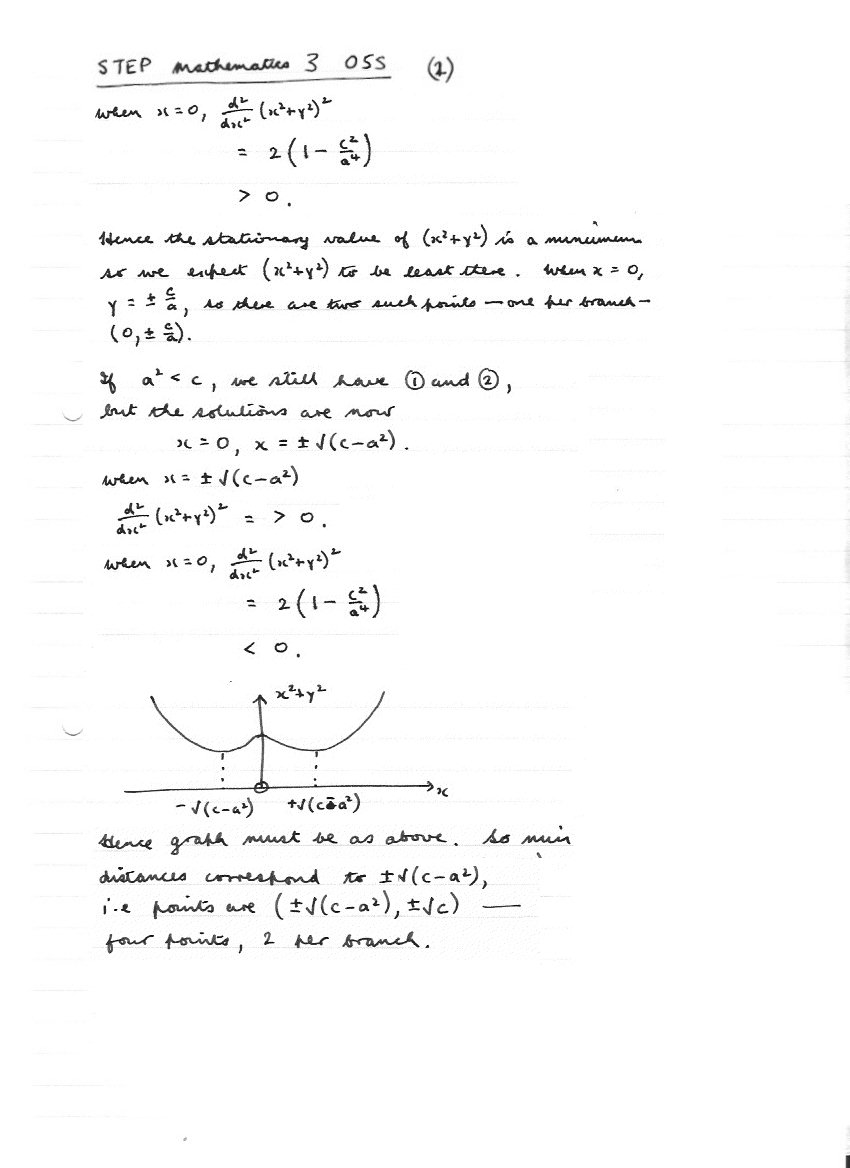 STEP Mathematics 3 05S (2)
When x=0, d²/dx² (x²+y²)²
= 2(1 - c²/a⁴)
> 0.
Hence the stationary value of (x²+y²) is a minimum
so we expect (x²+y²) to be least there. When x = 0,
y = ± c/a, so there are two such points — one per branch —
(0, ± c/a).
If a² < c, we still have ① and ②,
but the solutions are now
x = 0, x = ±√(c-a²).
When x = ±√(c-a²)
d²/dx² (x²+y²)² = > 0.
When x=0, d²/dx² (x²+y²)²
= 2(1 - c²/a⁴)
< 0.
x²+y²
x
-√(c-a²) +√(c-a²)
Hence graph must be as above. So min
distances correspond to ±√(c-a²),
i.e points are (±√(c-a²), ±√c) —
four points, 2 per branch.